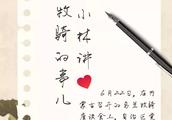 小林讲
牧骑的事儿
6月22日，在内
蒙古召开的乌兰牧骑
座谈会上，自治区党